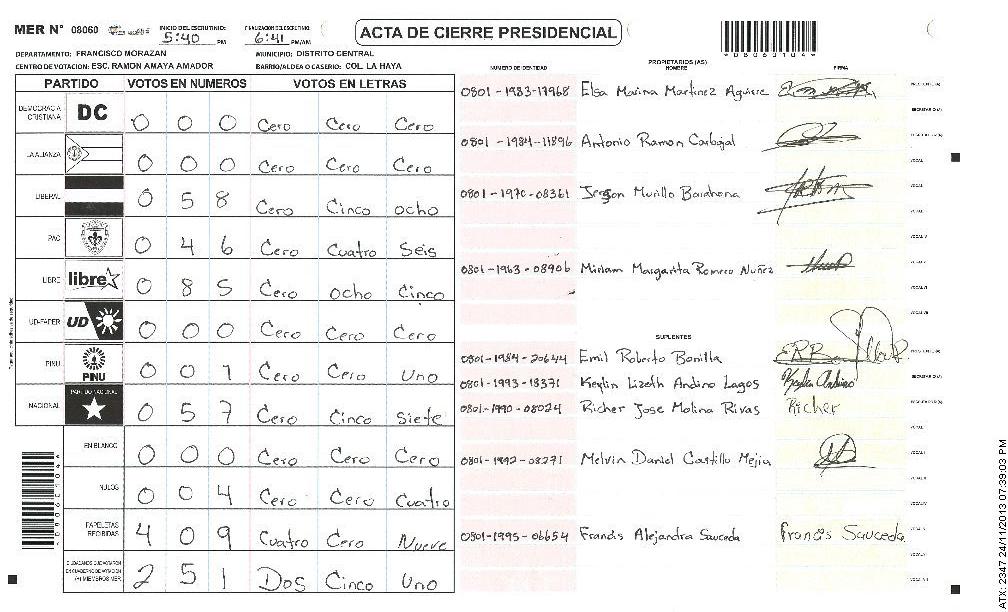 MER N° 08060 INICIO DEL ESCRUTINIO: 5:40 PM FINALIZACION DEL ESCRUTINIO: 6:41 PM/AM
ACTA DE CIERRE PRESIDENCIAL
DEPARTAMENTO: FRANCISCO MORAZAN MUNICIPIO: DISTRITO CENTRAL
CENTRO DE VOTACION: ESC. RAMON AMAYA AMADOR BARRIO/ALDEA O CASERIO: COL. LA HAYA
PARTIDO VOTOS EN NUMEROS VOTOS EN LETRAS
DEMOCRACIA CRISTIANA DC 0 0 0 Cero Cero Cero
LA ALIANZA 0 0 0 Cero Cero Cero
LIBERAL 0 5 8 Cero Cinco ocho
PAC 0 4 6 Cero Cuatro Seis
LIBRE libre 0 8 5 Cero ocho Cinco
UD-FAPER UD 0 0 0 Cero Cero Cero
PINU PINU 0 0 1 Cero Cero Uno
NACIONAL PARTIDO NACIONAL 0 5 7 Cero Cinco Siete
EN BLANCO 0 0 0 Cero Cero Cero
NULOS 0 0 4 Cero Cero Cuatro
PAPELETAS RECIBIDAS 4 0 9 Cuatro Cero Nueve
2 5 1 Dos Cinco Uno
NUMERO DE IDENTIDAD PROPIETARIOS (AS) NOMBRE FIRMA
0801-1983-17968 Elsa Marina Martinez Aguirre
0801-1984-11896 Antonio Ramon Carbajal
0801-1970-08361 Jerson Murillo Barahona
0801-1963-08906 Miriam Margarita Romero Nuñez
SUPLENTES
0801-1984-20644 Emil Roberto Bonilla
0801-1993-18371 Keylin Lizeth Andino Lagos Keylin Andino
0801-1990-08024 Richer Jose Molina Rivas Richer
0801-1992-08271 Melvin Daniel Castillo Mejia
0801-1995-06654 Francis Alejandra Sauceda Francis Sauceda
ATX: 2347 24/11/2013 07:39:03 PM